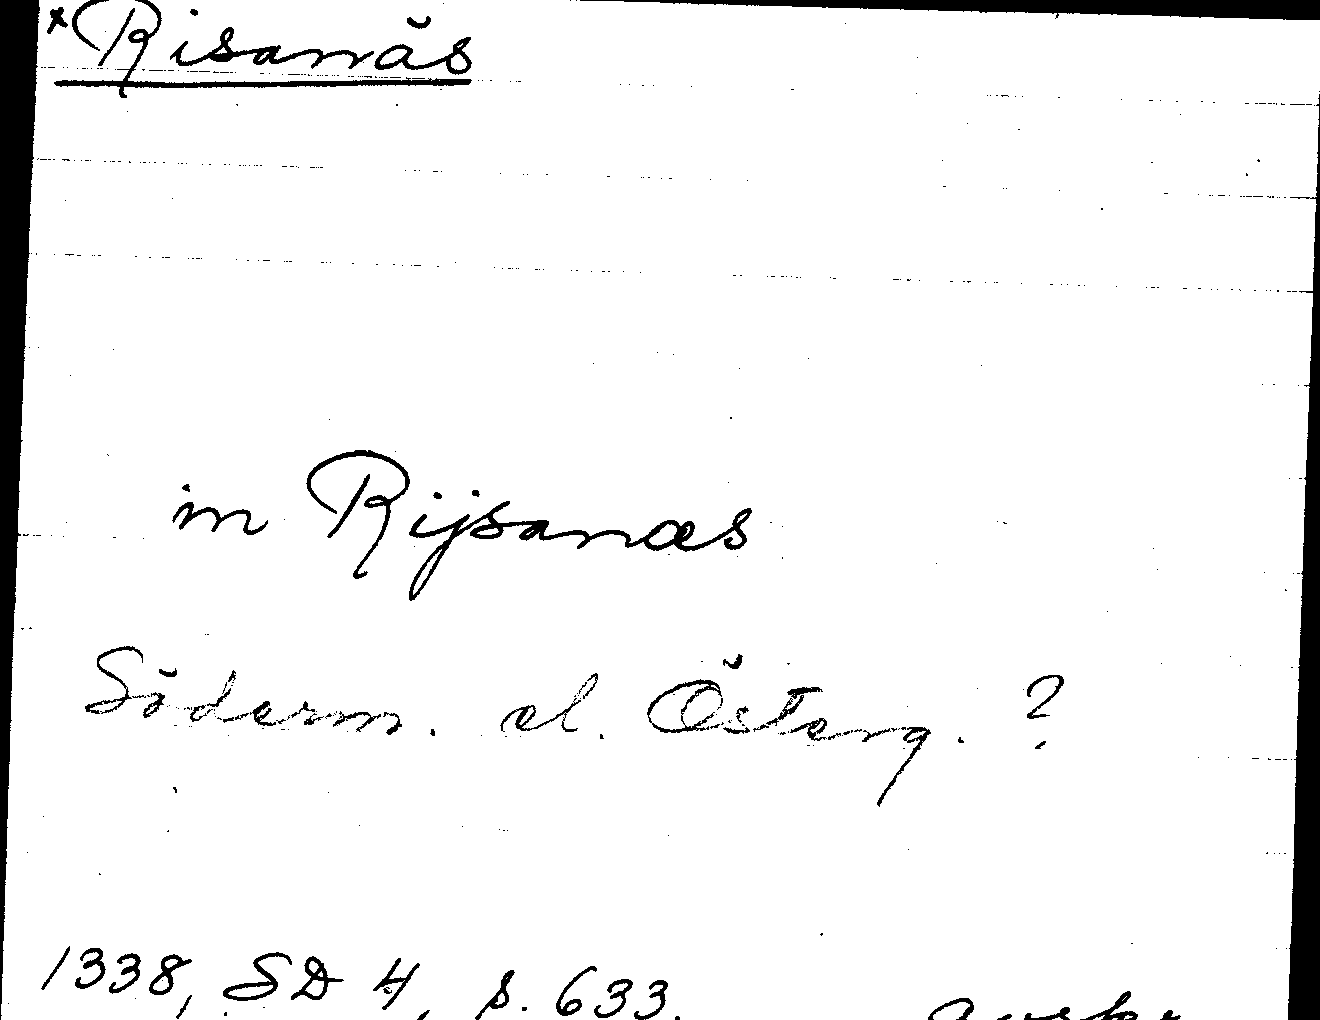 *Risanäs
in Rijsanæs
Söderm. el. Österg. ?
1338, SD 4, s. 633.